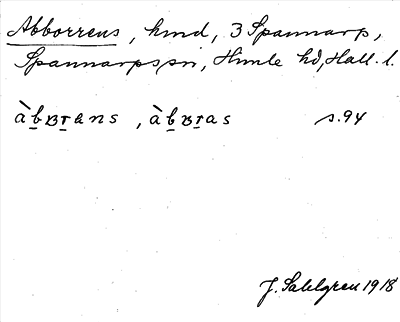 Abborrens, hmd, 3 Spannarp,
Spannarps sn, Himle hd, Hall. l.
àbʙɪans, àbʙɪas s. 94
J. Sahlgren 1918